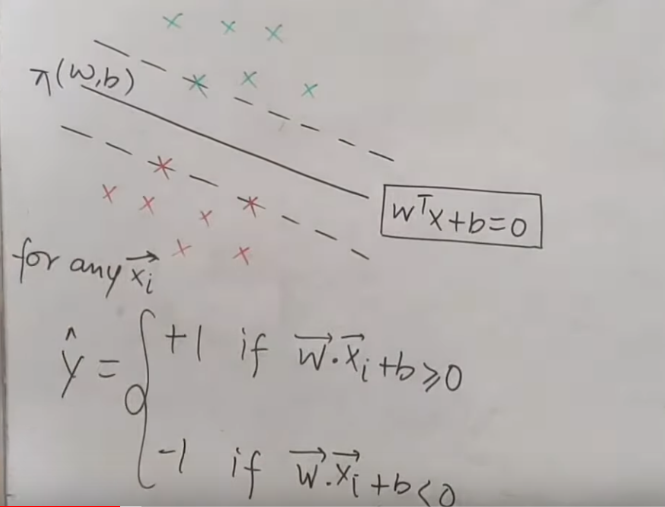 π(w,b)
wᵀx+b=0
for any x⃗ᵢ
ŷ = { +1 if w⃗.x⃗ᵢ+b⩾0
-1 if w⃗.x⃗ᵢ+b<0